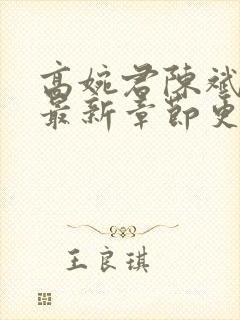 高婉君陈斌
最新章节更
王良琪